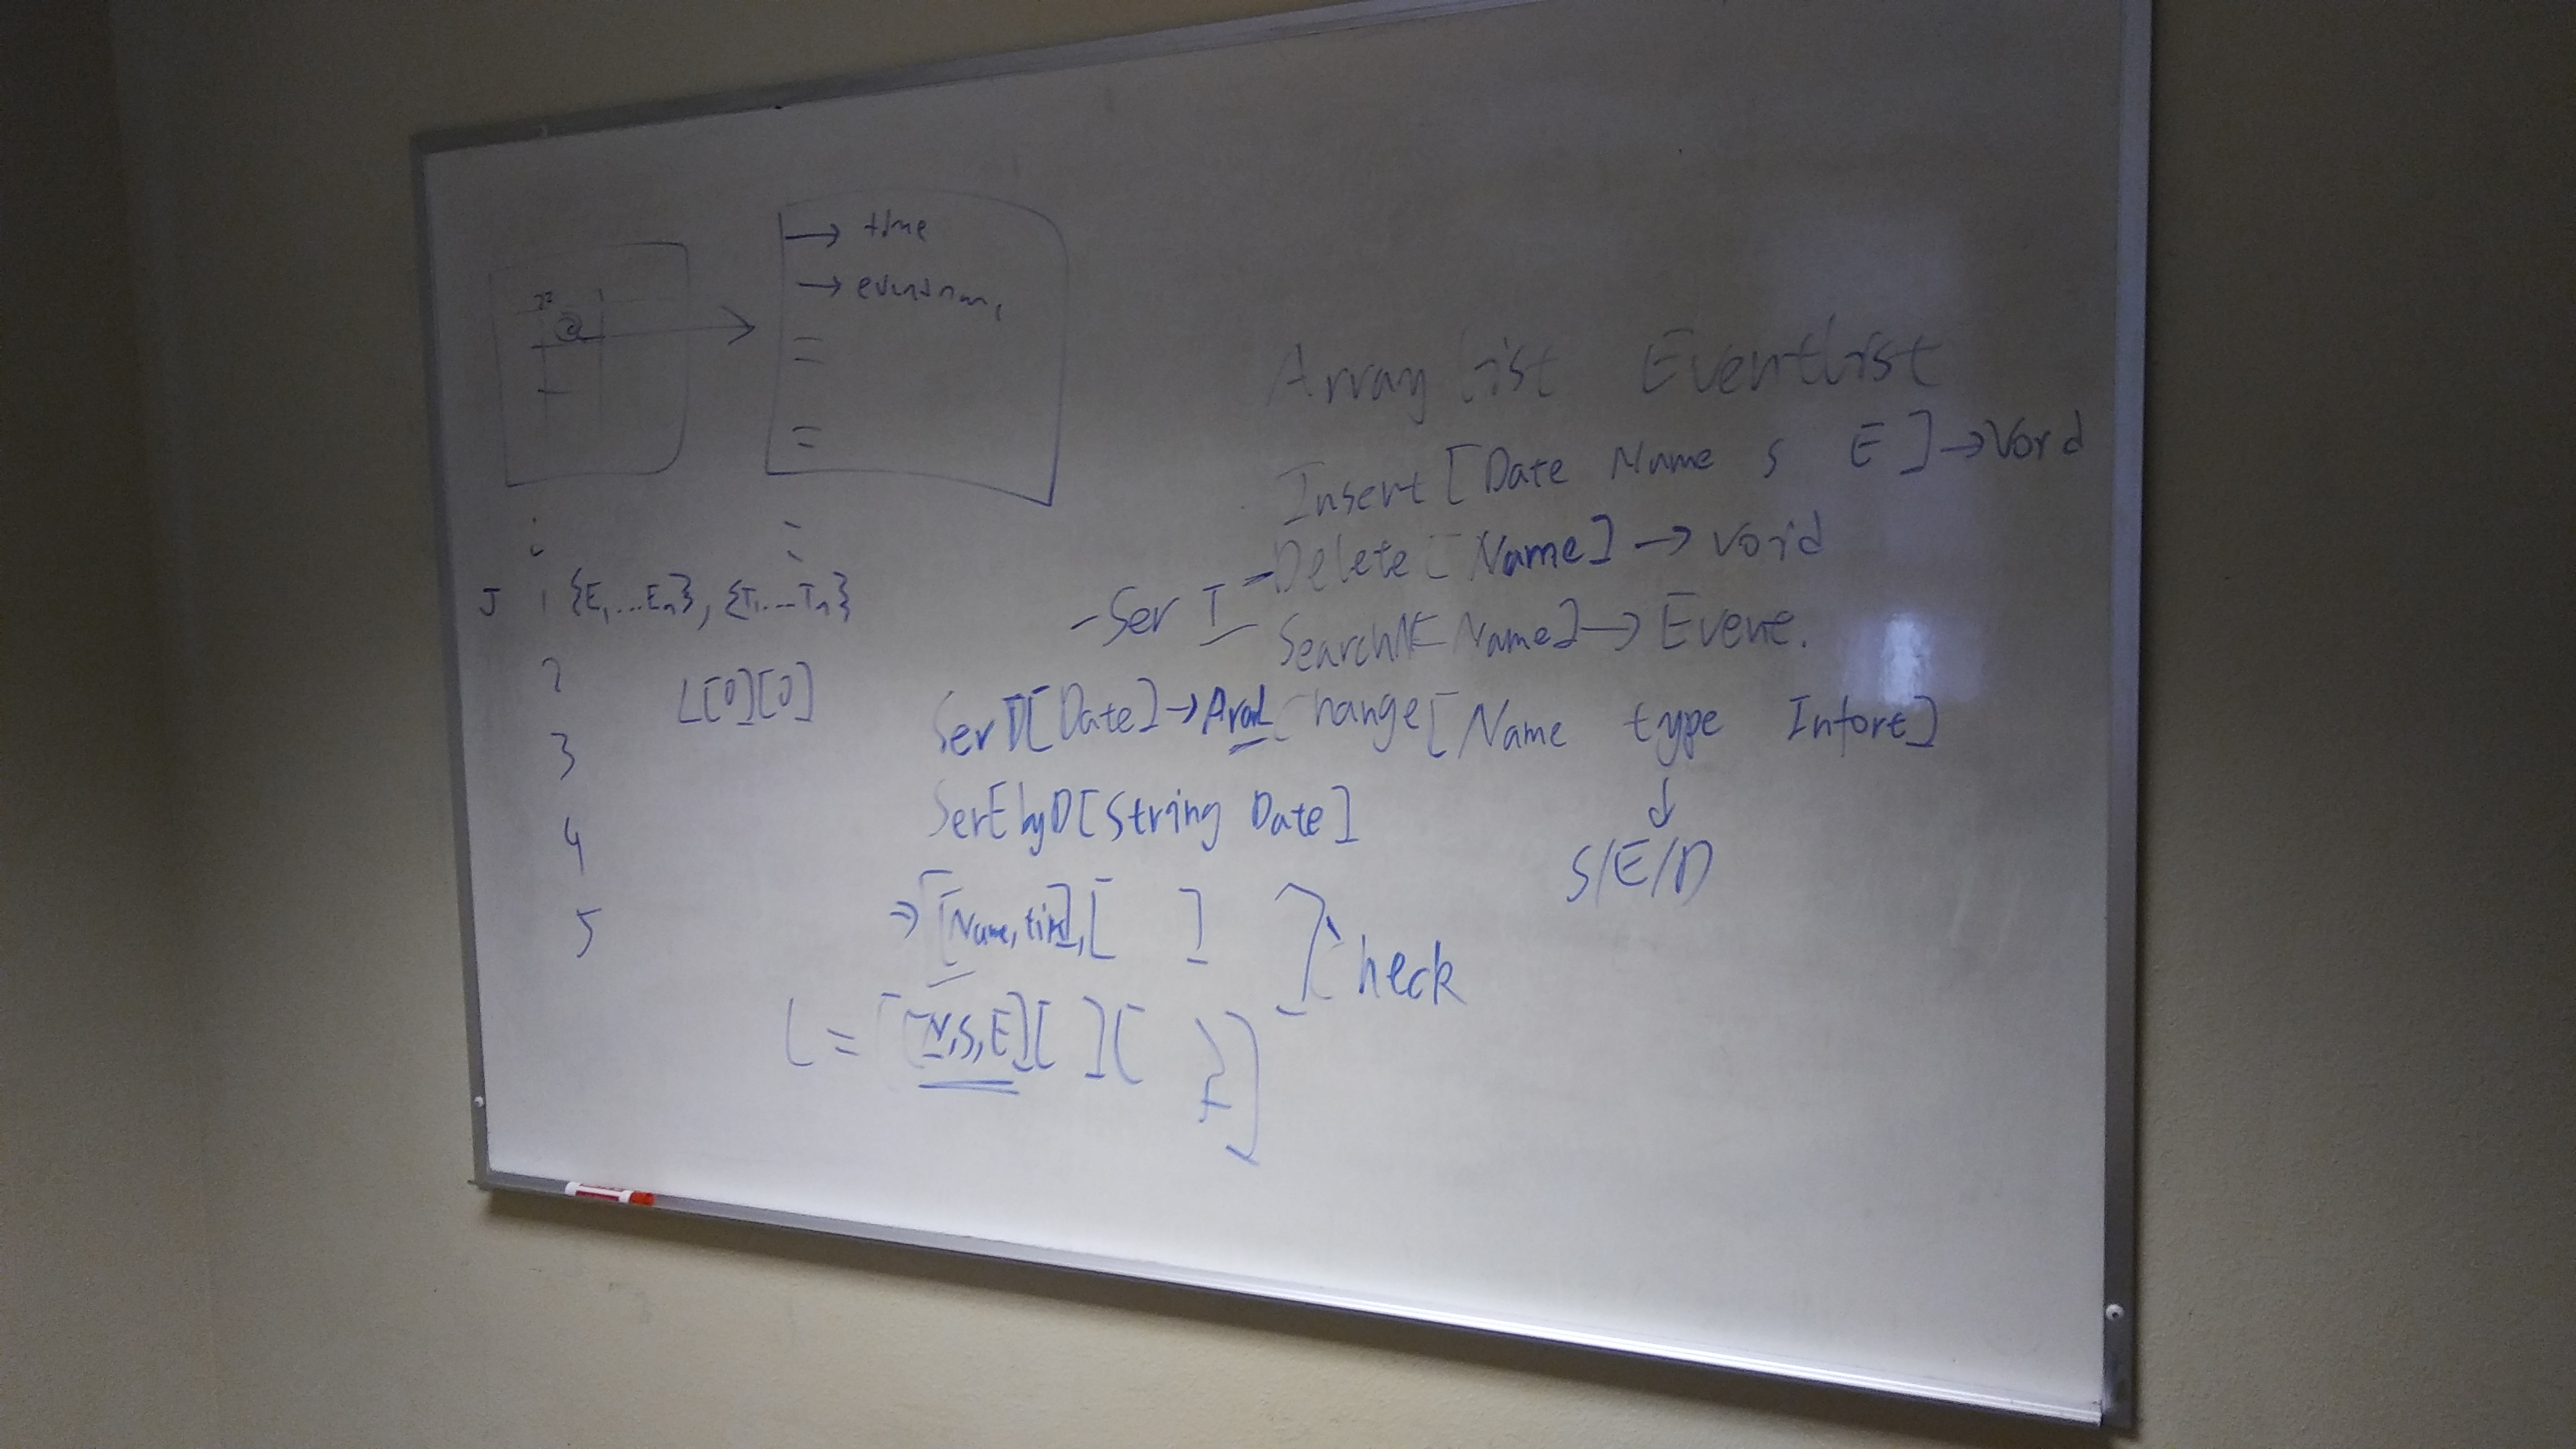 → time
→
J 1 {E₁...Eₙ}, {T₁...Tₙ}
2
L[0][0]
3
4
5
Array list Eventlist
Insert [Date Name S E] → Void
Delete [Name] → void
- Ser I
SearchN[Name] → Evene.
SerD[Date] →
Change [Name type Infort]
↓
S/E/D
SerEbyD[String Date]
⇒ [[Name, tim], [ ] ]
Check
L = [[N,S,E][ ][ ]]